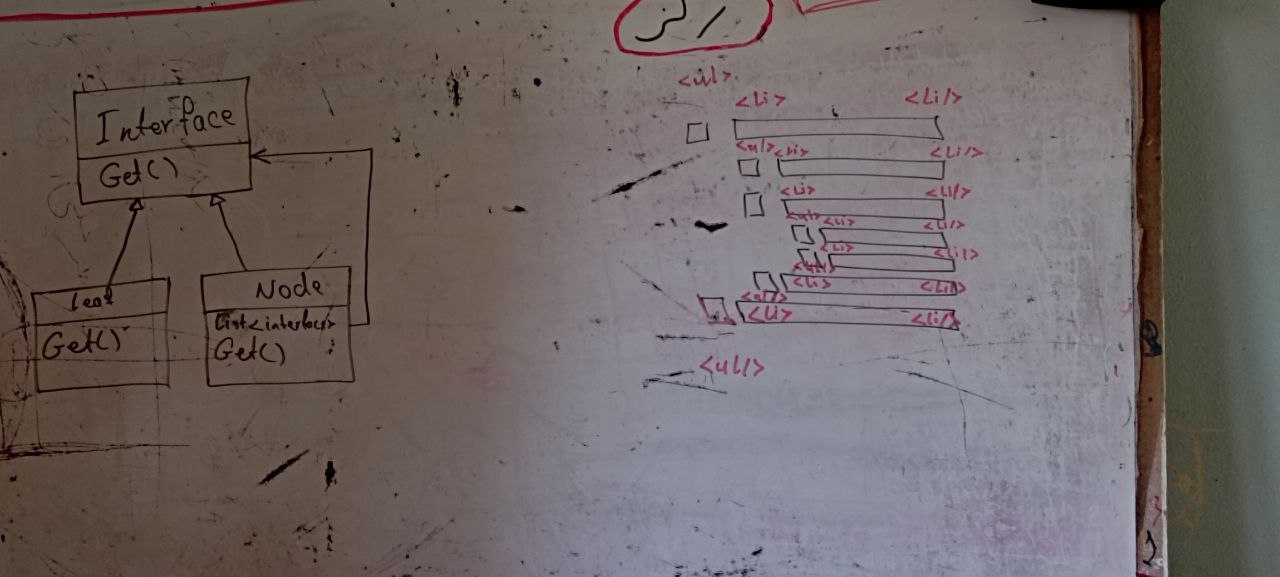 Interface
Get()
Leaf
Get()
Node
List<interface>
Get()
<ul>
<Li> <Li/>
<ul> <Li> <Li/>
<Li> <Li/>
<ul> <Li> <Li/>
<Li> <Li/>
<ul/>
<Li> <Li/>
<ul/>
<Li> <Li/>
<ul/>